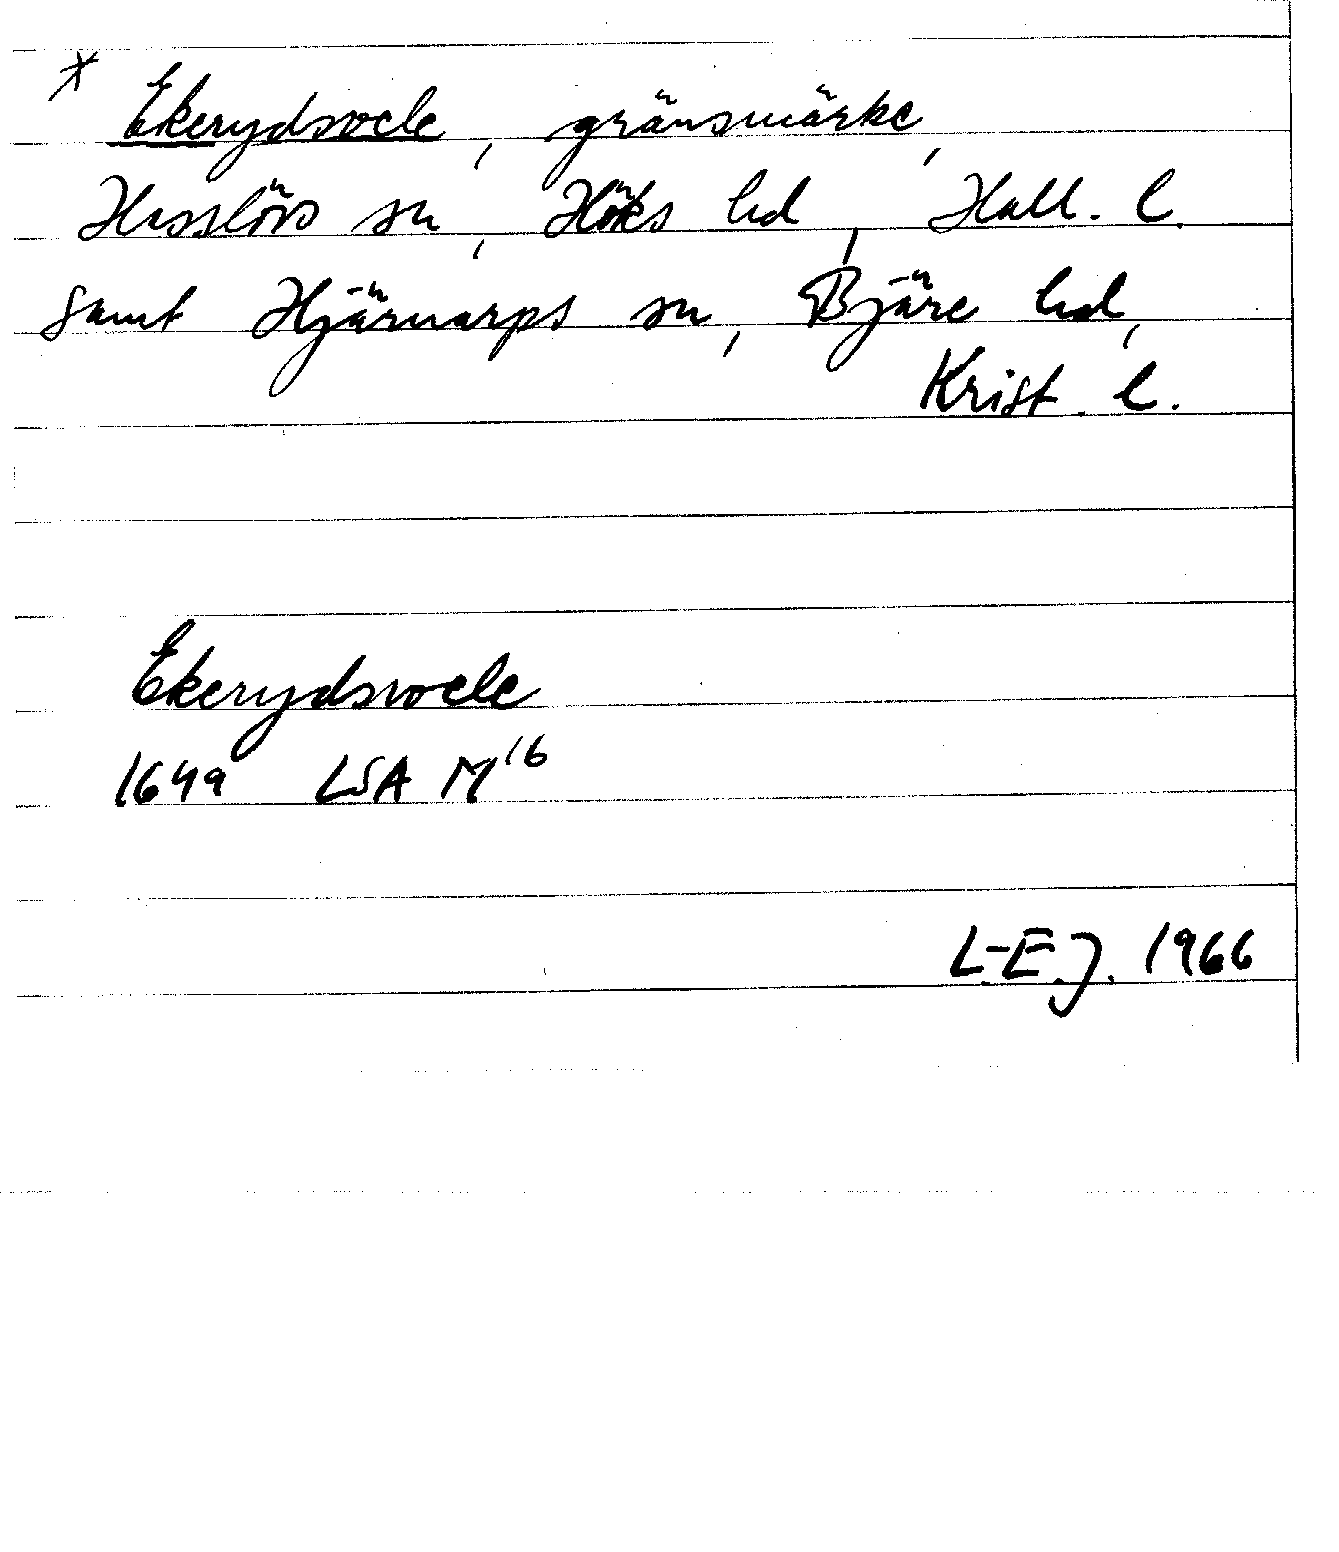 * Ekerydsroele, gränsmärke,
Hasslövs sn, Höks hd, Hall. l.
samt Hjärnarps sn, Bjäre hd,
Krist. l.
Ekerydsroele
1649 LSA M16
L-E.J. 1966